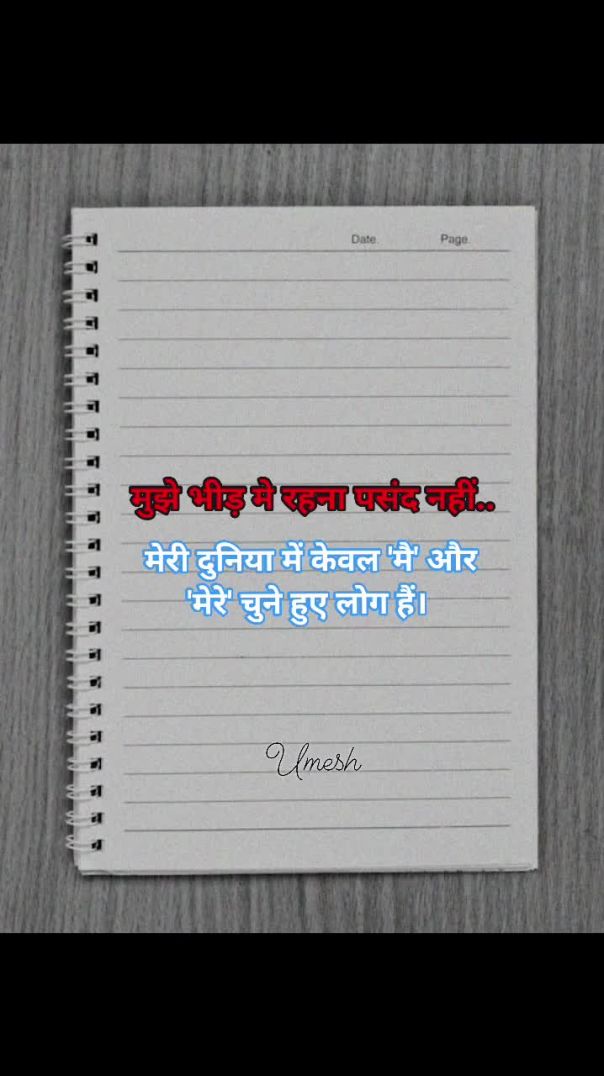 Date. Page.
मुझे भीड़ मे रहना पसंद नहीं..
मेरी दुनिया में केवल 'मै' और
'मेरे' चुने हुए लोग हैं।
Umesh